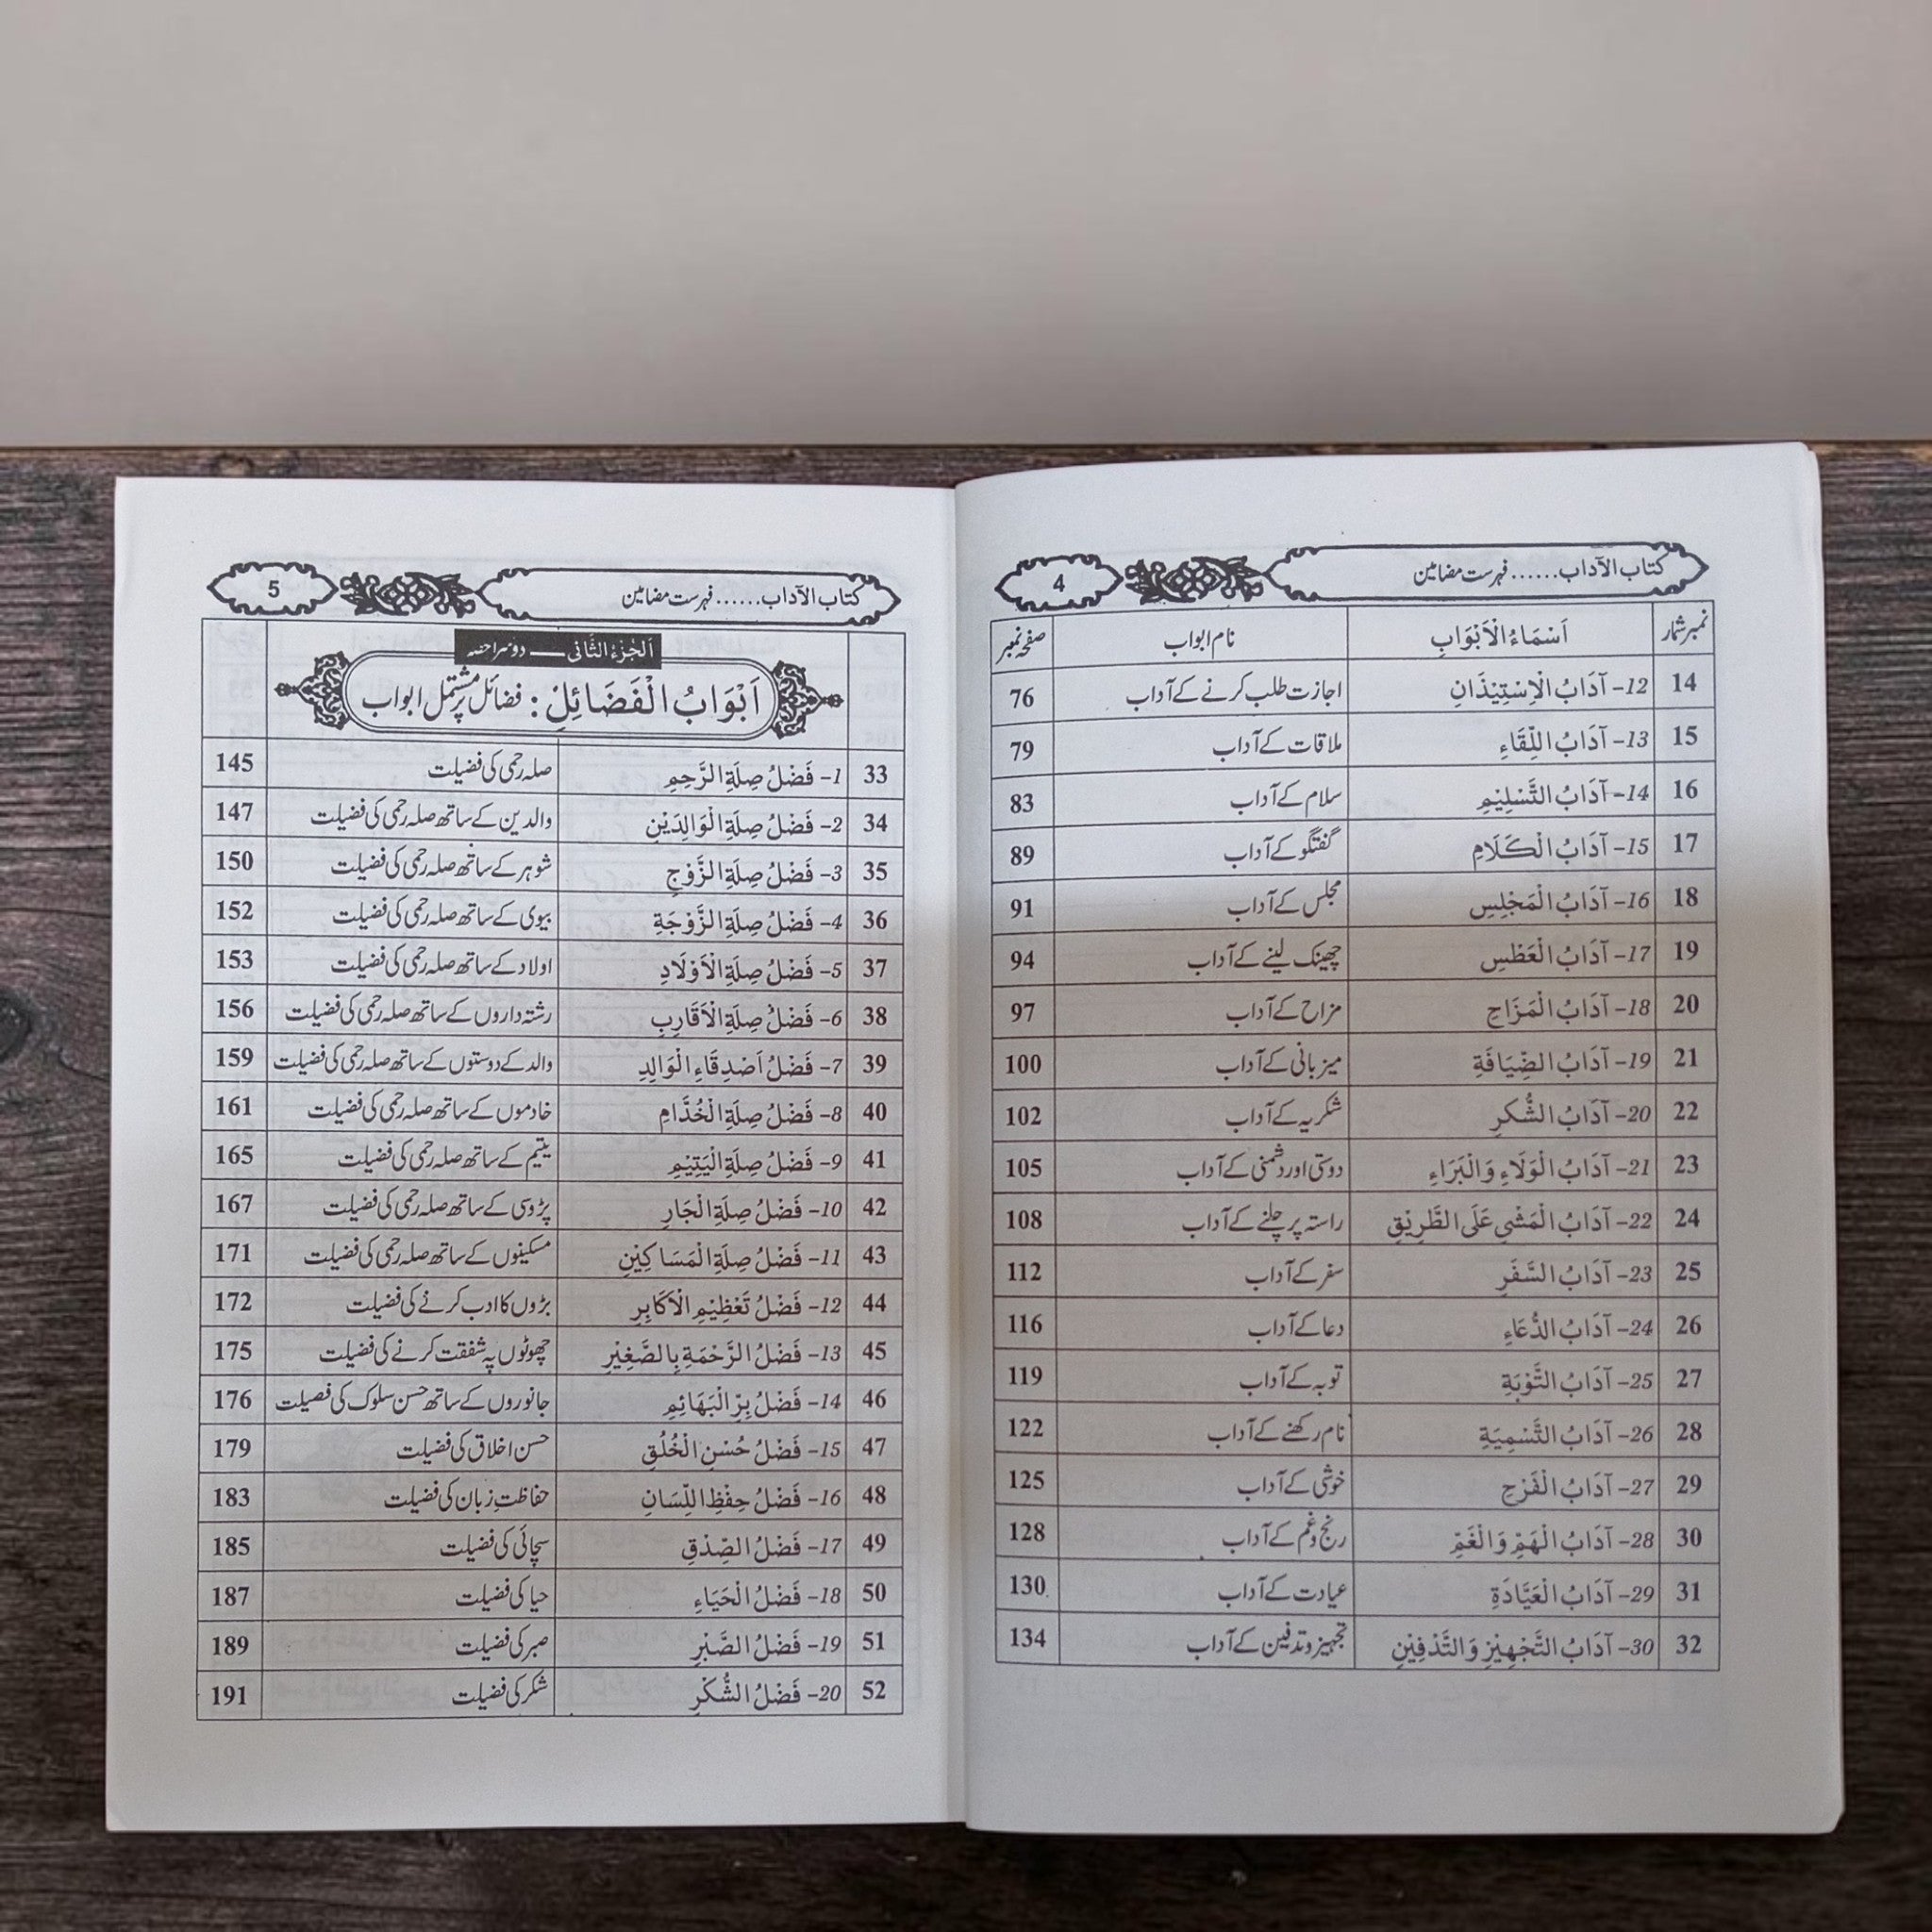 كتاب الآداب...... فہرست مضامین 4
نمبر شمار اَسْمَاءُ الْاَبْوَابِ نام ابواب صفحہ نمبر
14 12- آدَابُ الْاِسْتِيْذَانِ اجازت طلب کرنے کے آداب 76
15 13- آدَابُ اللِّقَاءِ ملاقات کے آداب 79
16 14- آدَابُ التَّسْلِيْمِ سلام کے آداب 83
17 15- آدَابُ الْكَلَامِ گفتگو کے آداب 89
18 16- آدَابُ الْمَجْلِسِ مجلس کے آداب 91
19 17- آدَابُ الْعَطْسِ چھینک لینے کے آداب 94
20 18- آدَابُ الْمَزَاحِ مزاح کے آداب 97
21 19- آدَابُ الضِّيَافَةِ میزبانی کے آداب 100
22 20- آدَابُ الشُّكرِ شکریہ کے آداب 102
23 21- آدَابُ الْوَلَاءِ وَالْبَرَاءِ دوستی اور دشمنی کے آداب 105
24 22- آدَابُ الْمَشْيِ عَلَى الطَّرِيْقِ راستہ پر چلنے کے آداب 108
25 23- آدَابُ السَّفَرِ سفر کے آداب 112
26 24- آدَابُ الدُّعَاءِ دعا کے آداب 116
27 25- آدَابُ التَّوْبَةِ توبہ کے آداب 119
28 26- آدَابُ التَّسْمِيَةِ نام رکھنے کے آداب 122
29 27- آدَابُ الْفَرْحِ خوشی کے آداب 125
30 28- آدَابُ الْهَمِّ وَالْغَمِّ رنج وغم کے آداب 128
31 29- آدَابُ الْعَيَّادَةِ عیادت کے آداب 130
32 30- آدَابُ التَّجْهِيْزِ وَالتَّدْفِيْنِ تجہیز وتدفین کے آداب 134
كتاب الآداب...... فہرست مضامین 5
اَلْجُزْءُ الثَّانِی —— دوسرا حصہ
اَبْوَابُ الْفَضَائِلِ: فضائل پر مشتمل ابواب
33 1- فَضْلُ صِلَةِ الرَّحِمِ صلہ رحمی کی فضیلت 145
34 2- فَضْلُ صِلَةِ الْوَالِدَيْنِ والدین کے ساتھ صلہ رحمی کی فضیلت 147
35 3- فَضْلُ صِلَةِ الزَّوْجِ شوہر کے ساتھ صلہ رحمی کی فضیلت 150
36 4- فَضْلُ صِلَةِ الزَّوْجَةِ بیوی کے ساتھ صلہ رحمی کی فضیلت 152
37 5- فَضْلُ صِلَةِ الْاَوْلَادِ اولاد کے ساتھ صلہ رحمی کی فضیلت 153
38 6- فَضْلُ صِلَةِ الْاَقَارِبِ رشتہ داروں کے ساتھ صلہ رحمی کی فضیلت 156
39 7- فَضْلُ اَصْدِقَاءِ الْوَالِدِ والد کے دوستوں کے ساتھ صلہ رحمی کی فضیلت 159
40 8- فَضْلُ صِلَةِ الْخُدَّامِ خادموں کے ساتھ صلہ رحمی کی فضیلت 161
41 9- فَضْلُ صِلَةِ الْيَتِيْمِ یتیم کے ساتھ صلہ رحمی کی فضیلت 165
42 10- فَضْلُ صِلَةِ الْجَارِ پڑوسی کے ساتھ صلہ رحمی کی فضیلت 167
43 11- فَضْلُ صِلَةِ الْمَسَاكِيْنِ مسکینوں کے ساتھ صلہ رحمی کی فضیلت 171
44 12- فَضْلُ تَعْظِيْمِ الْاَكَابِرِ بڑوں کا ادب کرنے کی فضیلت 172
45 13- فَضْلُ الرَّحْمَةِ بِالصَّغِيْرِ چھوٹوں پہ شفقت کرنے کی فضیلت 175
46 14- فَضْلُ بِرِّ الْبَهَائِمِ جانوروں کے ساتھ حسن سلوک کی فضیلت 176
47 15- فَضْلُ حُسْنِ الْخُلُقِ حسن اخلاق کی فضیلت 179
48 16- فَضْلُ حِفْظِ اللِّسَانِ حفاظتِ زبان کی فضیلت 183
49 17- فَضْلُ الصِّدْقِ سچائی کی فضیلت 185
50 18- فَضْلُ الْحَيَاءِ حیا کی فضیلت 187
51 19- فَضْلُ الصَّبْرِ صبر کی فضیلت 189
52 20- فَضْلُ الشُّكْرِ شکر کی فضیلت 191